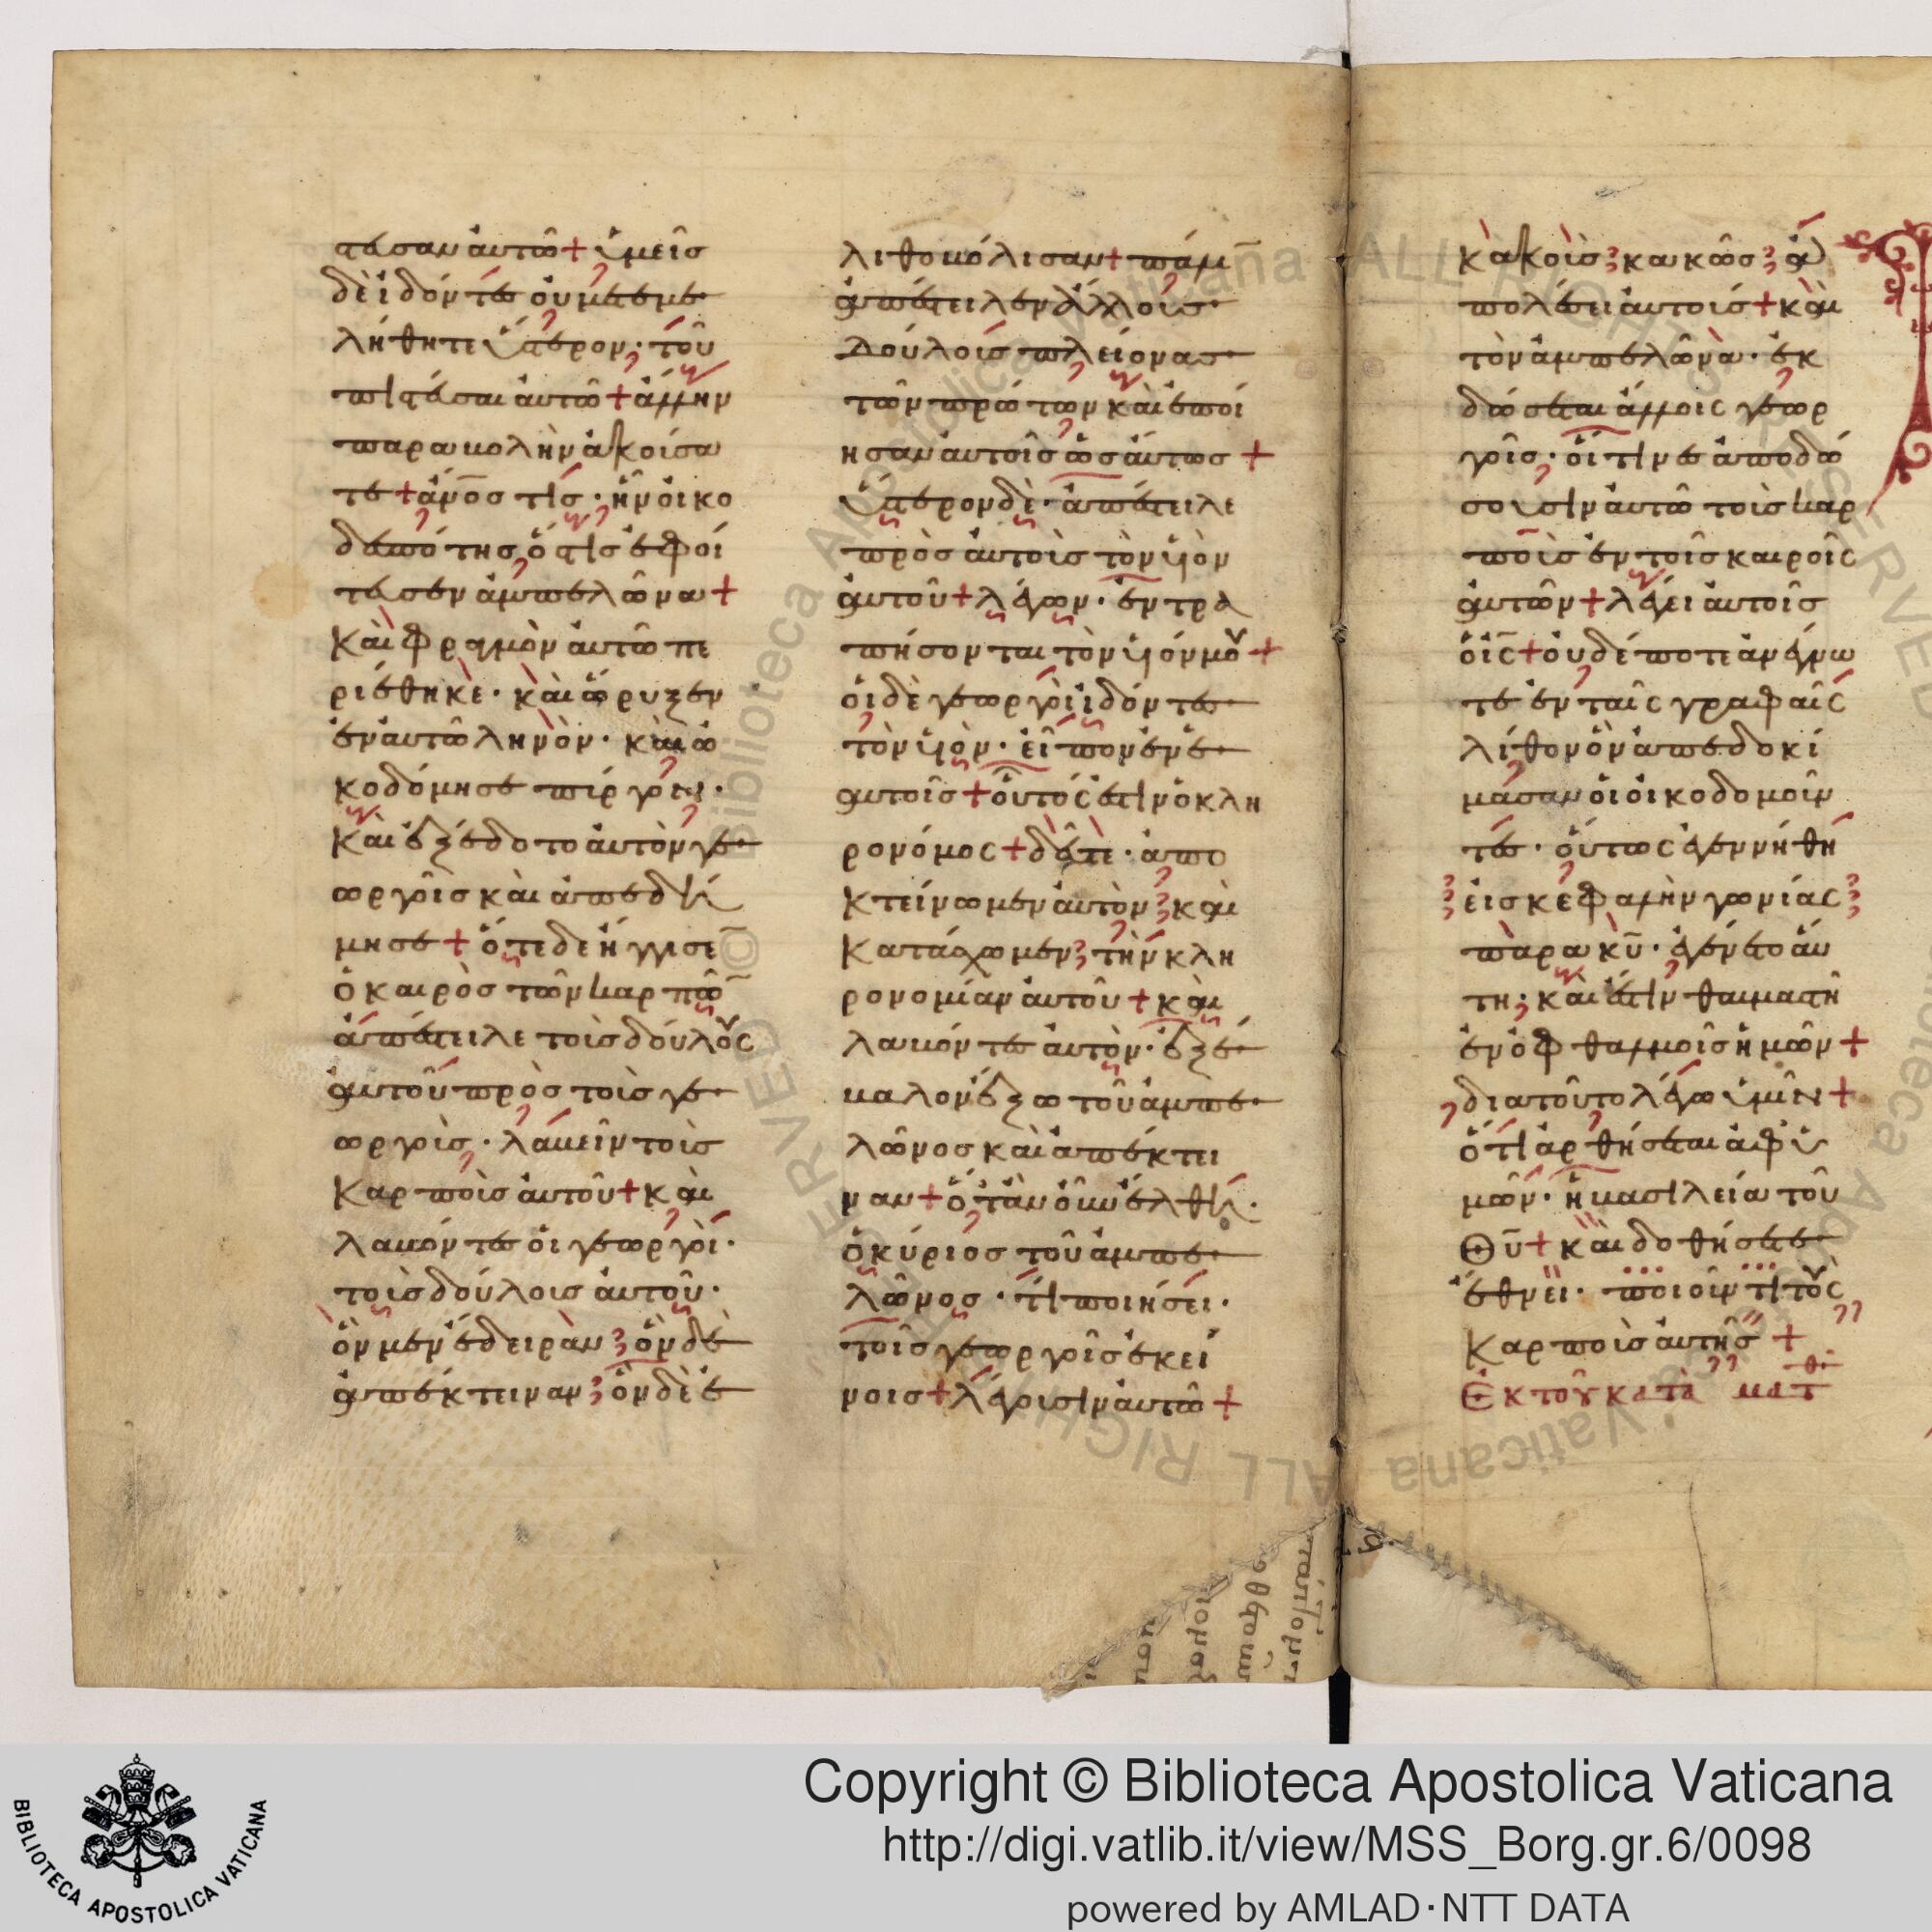 στευσαν ἀυτῶ + ὑμεῖς
δὲ ἰδόντες ὀυ μετεμε
λήθητε ὕστερον · τοῦ
πιστεύσαι ἀυτῶ + ἄλλην
παραβολὴν ἀκούσα
τε + ἄν̅οσ τίς · ἦν ὀικο
δεσπότησ, ὅστισ ἐφύ
τευσεν ἀμπελῶνα +
Καὶ φραγμὸν ἀυτῶ πε
ριέθηκε · καὶ ὤρυξεν
ἐν ἀυτῶ ληνὸν · καὶ ὠ
κοδόμησε πύργον ·
Καὶ ἐξέδοτο ἀυτὸν γε
ωργοῖσ καὶ ἀπεδή
μησε + ὅτε δὲ ἤγγισε̅
ὁ καιρὸσ τῶν καρπῶ̅
ἀπέστειλε τοὺσ δούλους
ἀυτοῦ πρὸσ τοὺσ γε
ωργοὺσ · λαβεῖν τοὺσ
Καρποὺσ ἀυτοῦ + καὶ
λαβόντες ὁι γεωργοὶ ·
τοὺσ δούλουσ ἀυτοῦ ·
ὃν μὲν ἔδειραν ; ὃν δὲ
ἀπέκτειναν ; ὃν δὲ ἐ
λιθοβόλισαν + πάλιν
ἀπέστειλεν ἄλλους
Δούλους πλείονασ
τῶν πρώτων καὶ ἐποί
ησαν ἀυτοῖσ ὡσάυτωσ +
ὕστερον δὲ · ἀπέστειλε
πρὸσ ἀυτοὺσ τὸν υἱὸν
ἀυτοῦ + λέγων · ἐντρα
πήσονται τὸν υἱόν μου +
ὁι δὲ γεωργοὶ ἰδόντες
τὸν υἱὸν · εἶπον ἐν ἑ
αυτοῖσ + οὗτός ἐστιν ὁ κλη
ρονόμος + δεῦτε · ἀπο
κτείνωμεν ἀυτὸν ; καὶ
Κατάσχωμεν ; τὴν κλη
ρονομίαν ἀυτοῦ + καὶ
λαβόντες ἀυτὸν · ἐξέ
βαλον ἔξω τοῦ ἀμπε
λῶνοσ καὶ ἀπέκτει
ναν + ὅταν οὖν ἔλθη ·
ὁ κύριοσ τοῦ ἀμπε
λῶνοσ · τί ποιήσει ·
τοῖσ γεωργοῖσ ἐκεί
νοισ + λέγουσιν ἀυτῶ +
κακοὺσ ; κακῶσ ; ἀ
πολέσει ἀυτούσ + καὶ
τὸν ἀμπελῶνα · ἐκ
δώσεται ἄλλοις γεωρ
γοῖσ · οἵτινες ἀποδώ
σουσιν ἀυτῶ τοὺσ καρ
ποὺσ ἐν τοῖσ καιροῖς
ἀυτῶν + λέγει ἀυτοῖσ
ὁ ις̅ + ὀυδέποτε ἀνέγνω
τε ἐν ταῖς γραφαῖς
λίθον ὃν ἀπεδοκί
μασαν ὁι ὀικοδομοῦν
τες · οὗτος ἐγεννήθη
; ἐισ κεφαλὴν γωνίας ;
παρα κυ̅ · ἐγένετο ἄυ
τη ; καὶ ἔστιν θαυμαστὴ
ἐν ὀφθαλμοῖσ ἡμῶν +
διατοῦτο λέγω ὑμῖν +
ὅτι ἀρθήσεται ἀφ ὑ
μῶν · ἡ βασιλεία τοῦ
Θυ̅ + καὶ δοθήσεται
ἔθνει · ποιοῦντι τοὺς
Καρποὺσ ἀυτῆσ +
Ἐκ τοῦ κατὰ ματθ